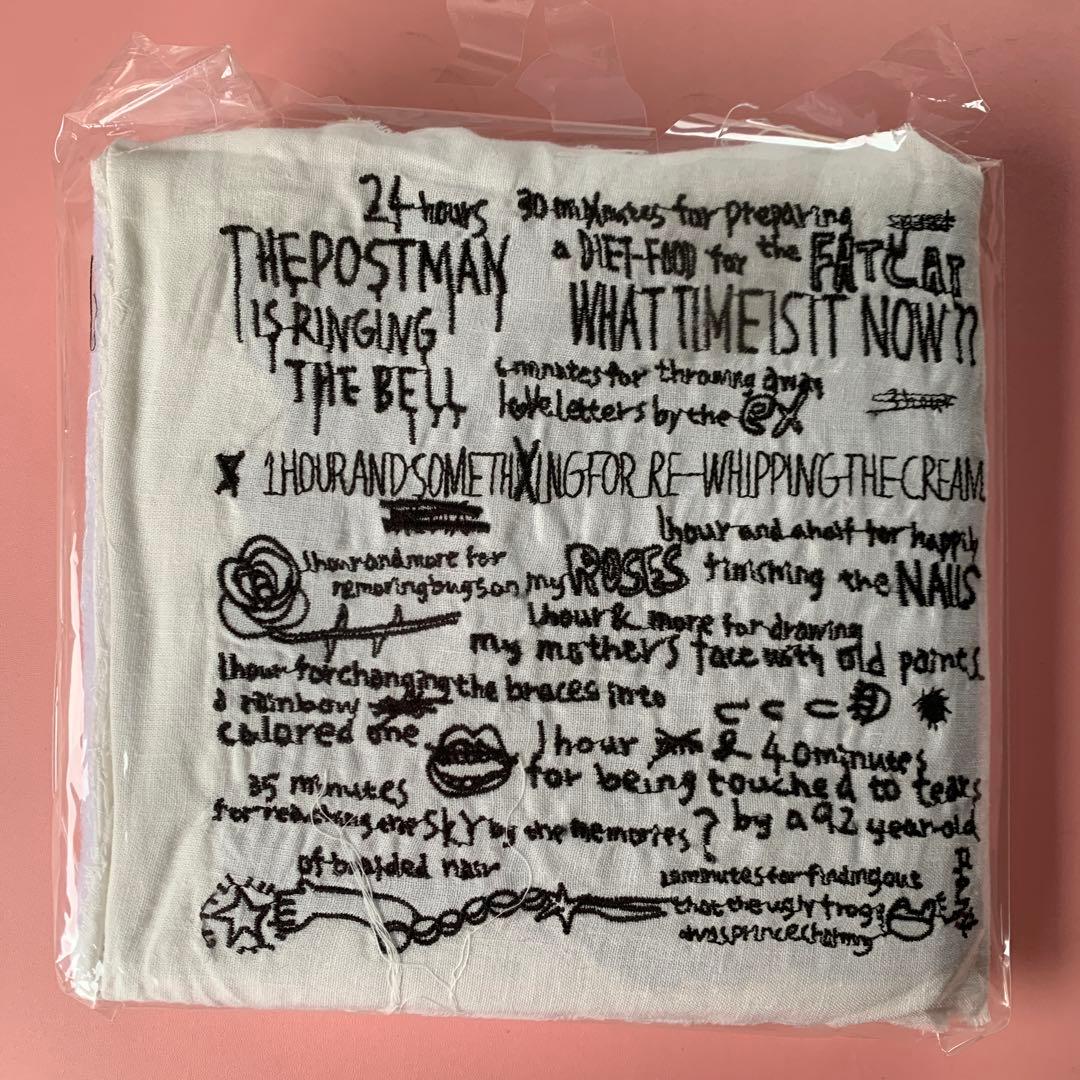 24 hours
THE POSTMAN
IS RINGING
THE BELL
30 minutes for preparing
a DIET-FOOD for the FATCAT
WHAT TIME IS IT NOW??
minutes for throwing away
love letters by the eX
3 hour
X 1HOUR AND SOMETHXING FOR RE-WHIPPING THE CREAM
1hour and a half for happily
finishing the NAILS
1hour and more for
removing bugs on my ROSES
1hour & more for drawing
my mother's face with old paints
1hour for changing the braces into
a rainbow
colored one
1hour & 40minutes
for being touched to tears
by a 92 year-old
35 minutes
for reaching the SKY by the memories?
of braided hair
minutes for finding out
that the ugly frogg
was prince charming